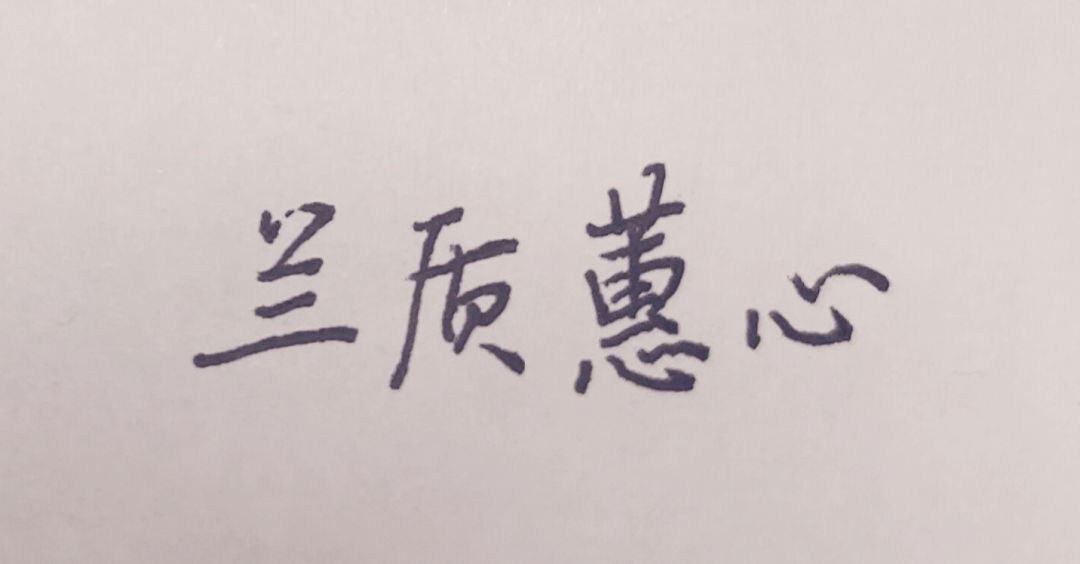 兰质蕙心